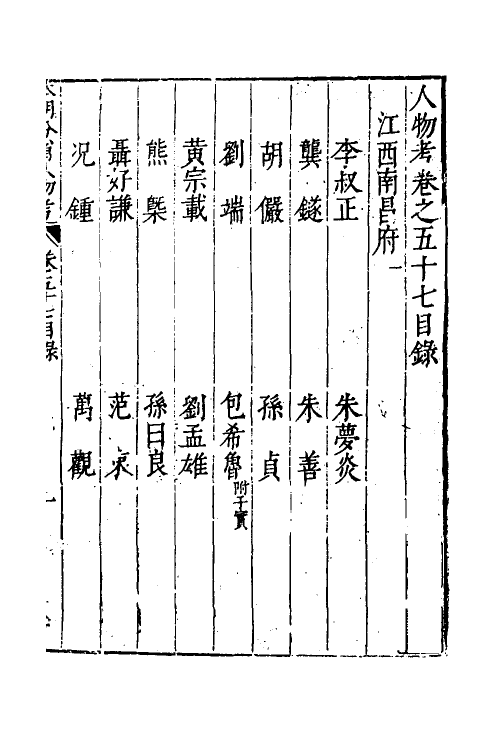 人物考卷之五十七目錄
江西南昌府一
李叔正　朱夢炎
龔鐩　朱善
胡儼　孫貞
劉端　包希魯附子實
黃宗載　劉孟雄
熊㮣　孫曰良
聶好謙　范衷
況鍾　萬觀
分省人物考　卷五十七目錄　一